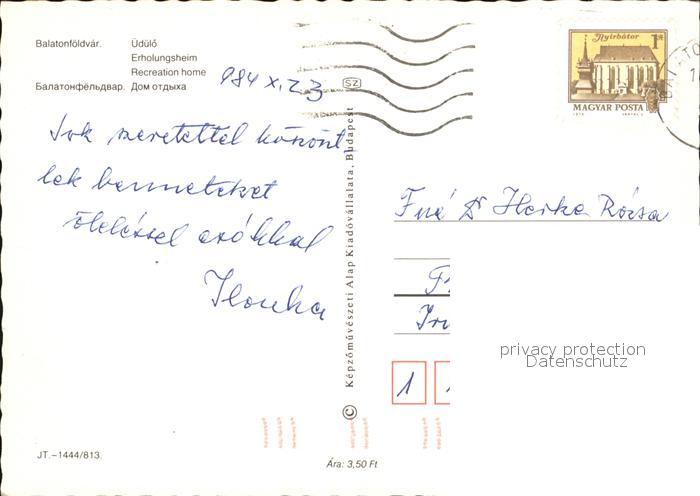 Balatonföldvár. Üdülő
Erholungsheim
Recreation home
Балатонфёльдвар. Дом отдыха
984 XI. 23
SZ
Nyírbátor
1 Ft
MAGYAR POSTA
Sok szeretettel köszönt
lek benneteket
öleléssel csókkal
Ilonka
© Képzőművészeti Alap Kiadóvállalata, Budapest
Dr Herke Rózsa
1
privacy protection
Datenschutz
JT.–1444/813.
Ára: 3,50 Ft